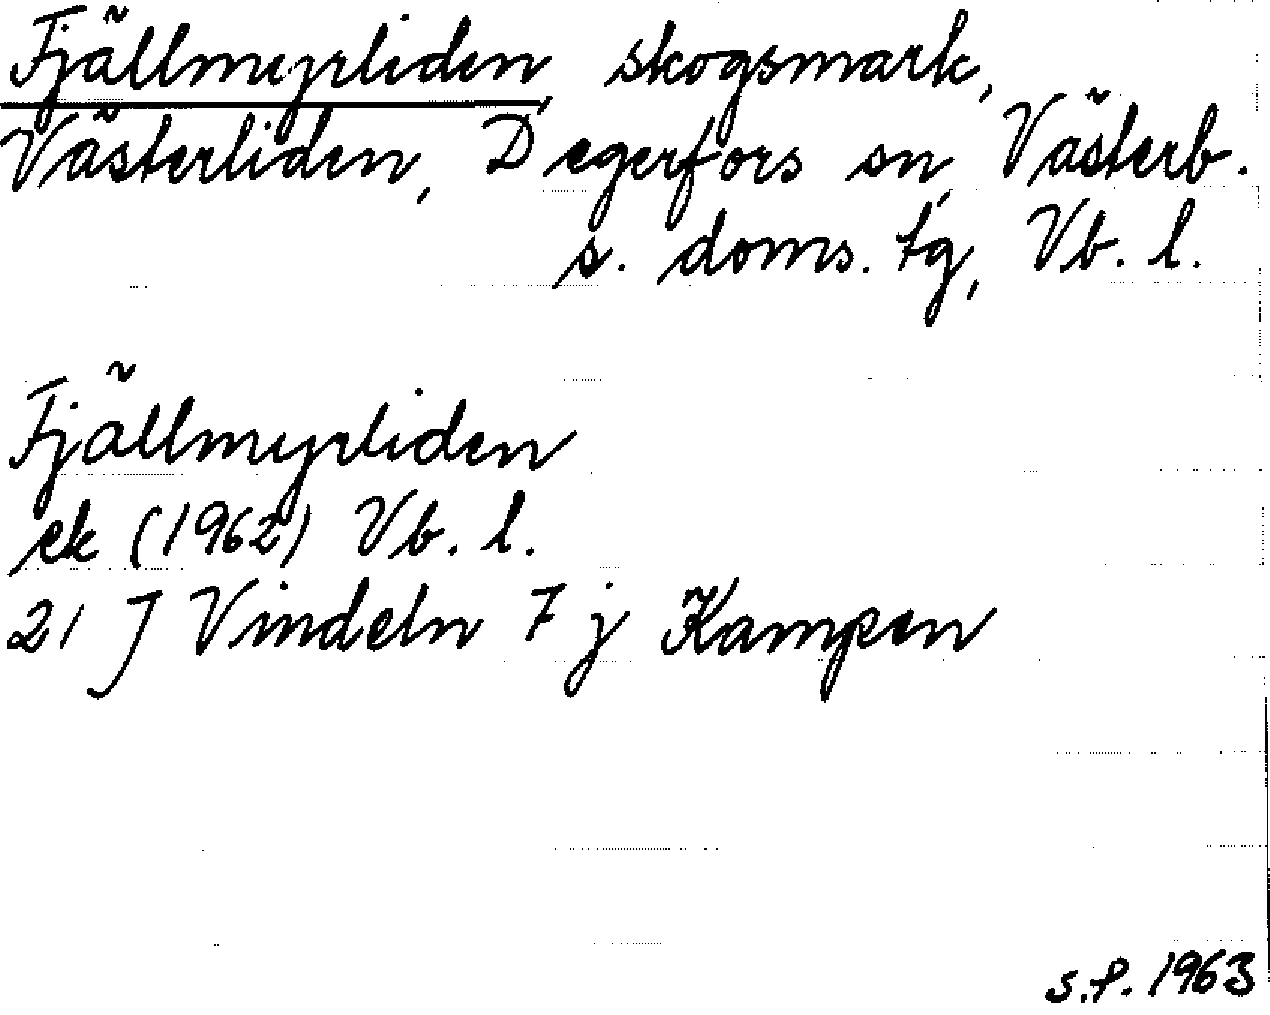 Fjällmyrliden, skogsmark,
Västerliden, Degerfors sn, Västerb.
s. doms. tg, Vb. l.
Fjällmyrliden
ek (1962) Vb. l.
21 J Vindeln 7 j Kampen
s.f. 1963